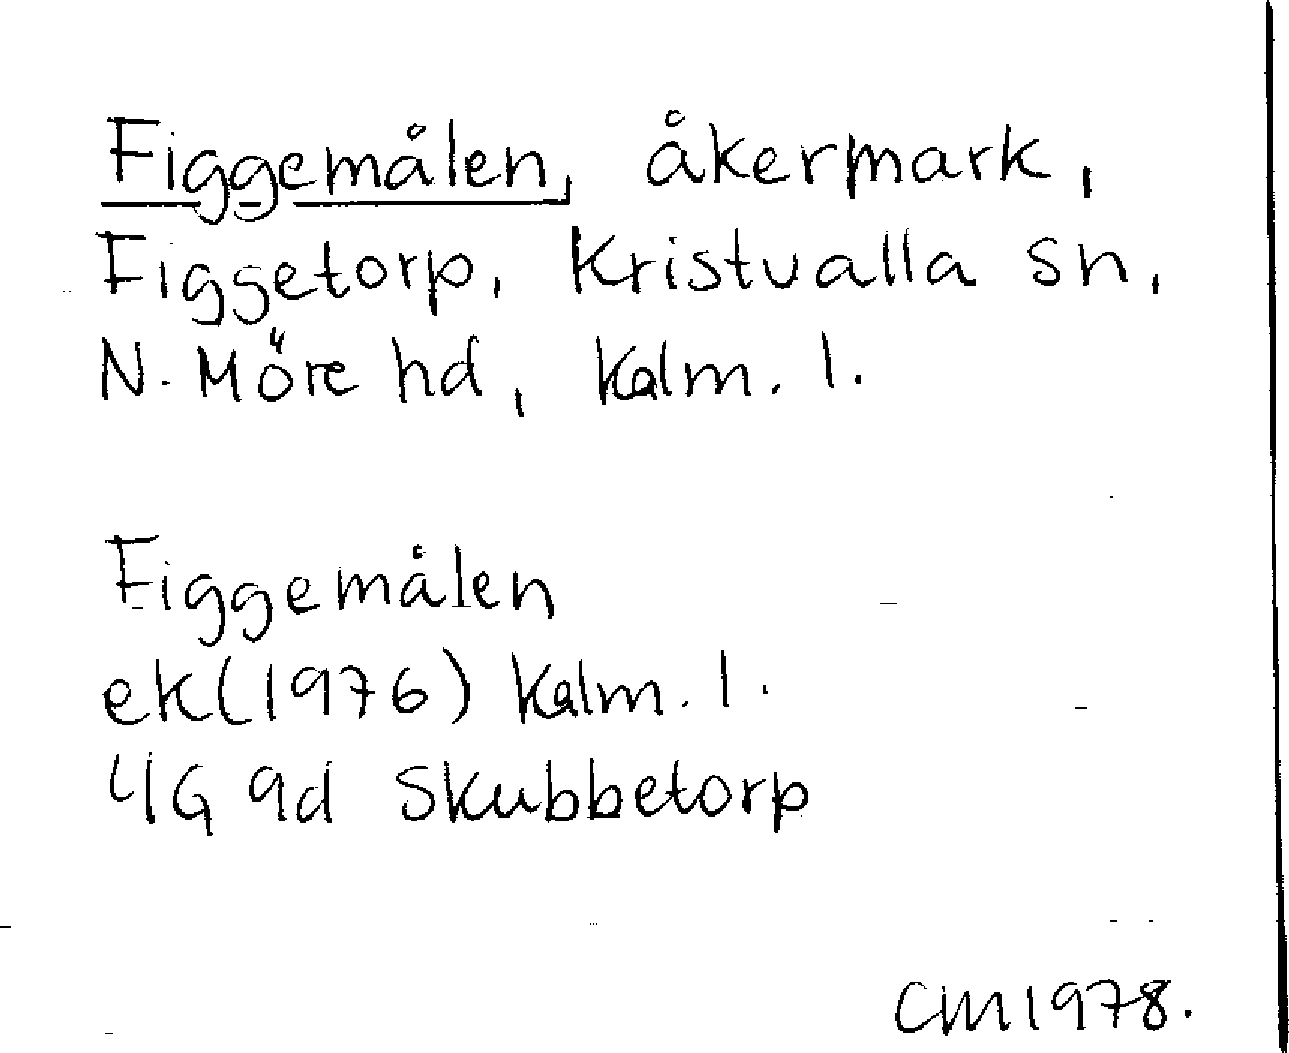 Figgemålen, åkermark,
Figgetorp, Kristvalla sn,
N. Möre hd, Kalm. l.
Figgemålen
ek(1976) Kalm. l.
4G 9d Skubbetorp
CM1978.